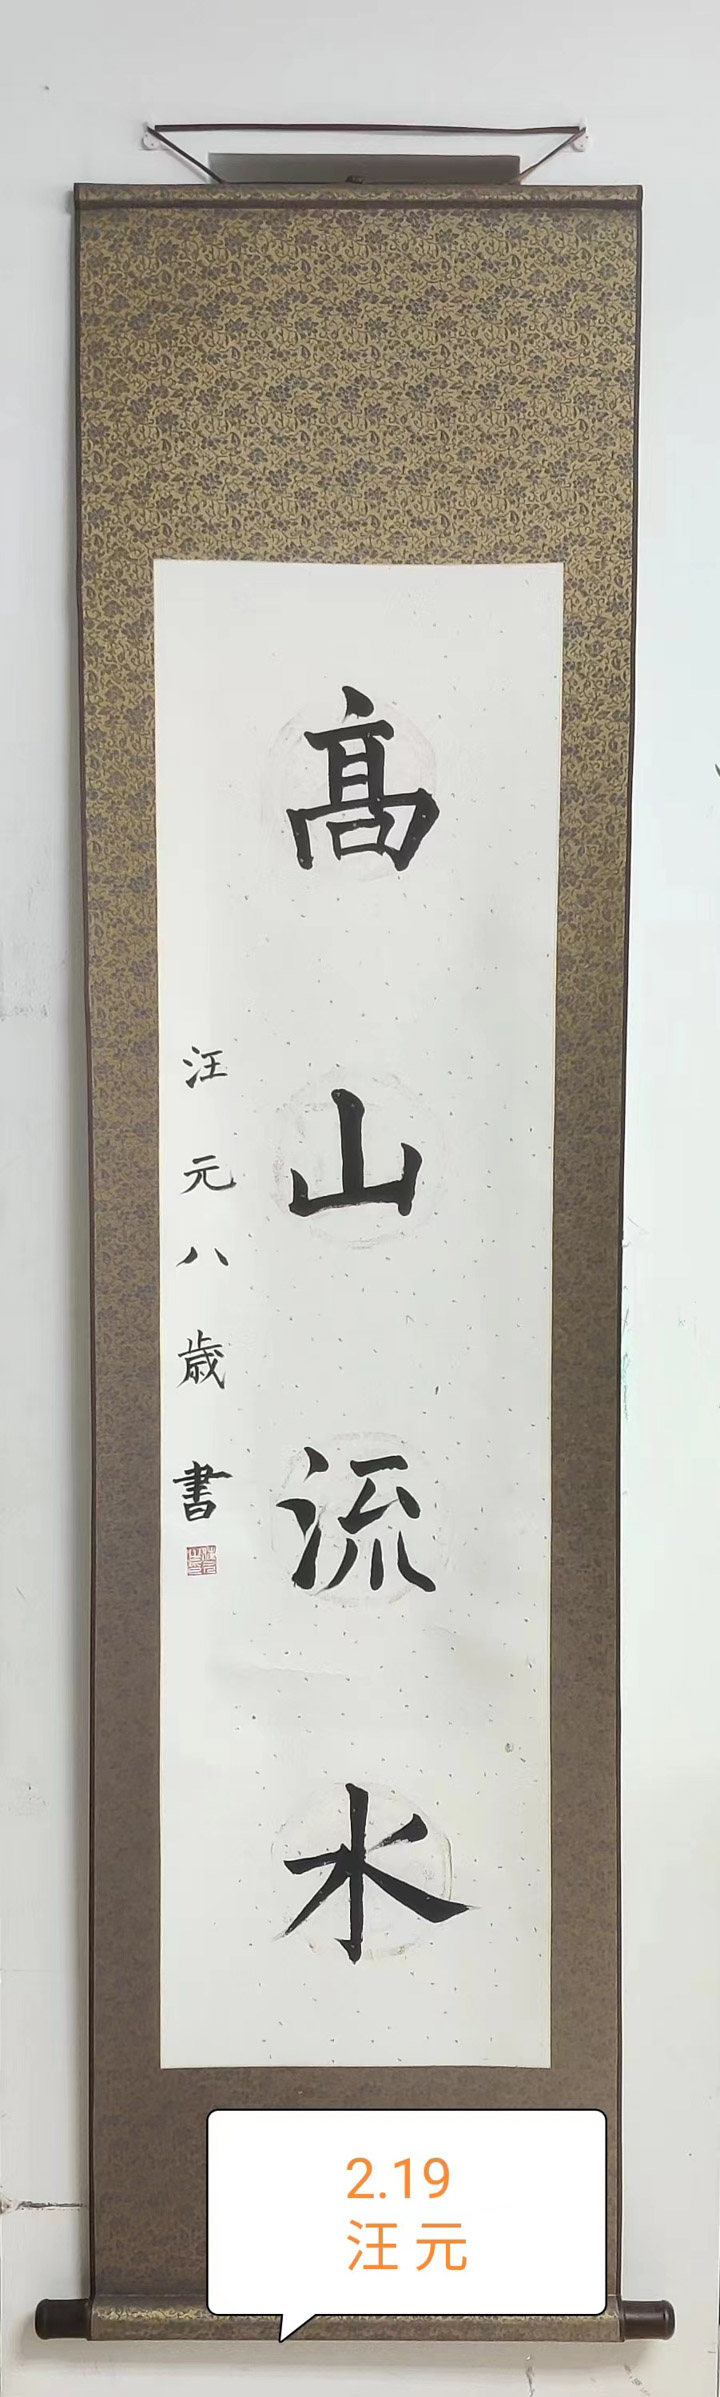 髙山流水
汪元八歳書
2.19
汪元